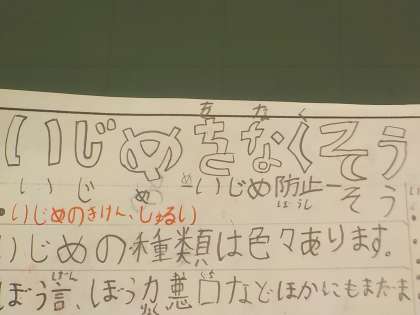 いじめをなくそう
いじめ-いじめ防止-そう
いじめのきけん、しゅるい
いじめの種類は色々あります。
ぼう言、ぼう力悪口などほかにもまたま